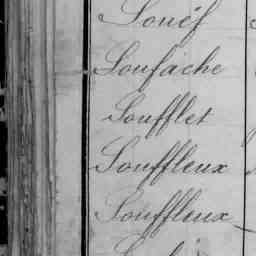 Souéf
Soufache
Soufflet
Souffleux
Souffleux